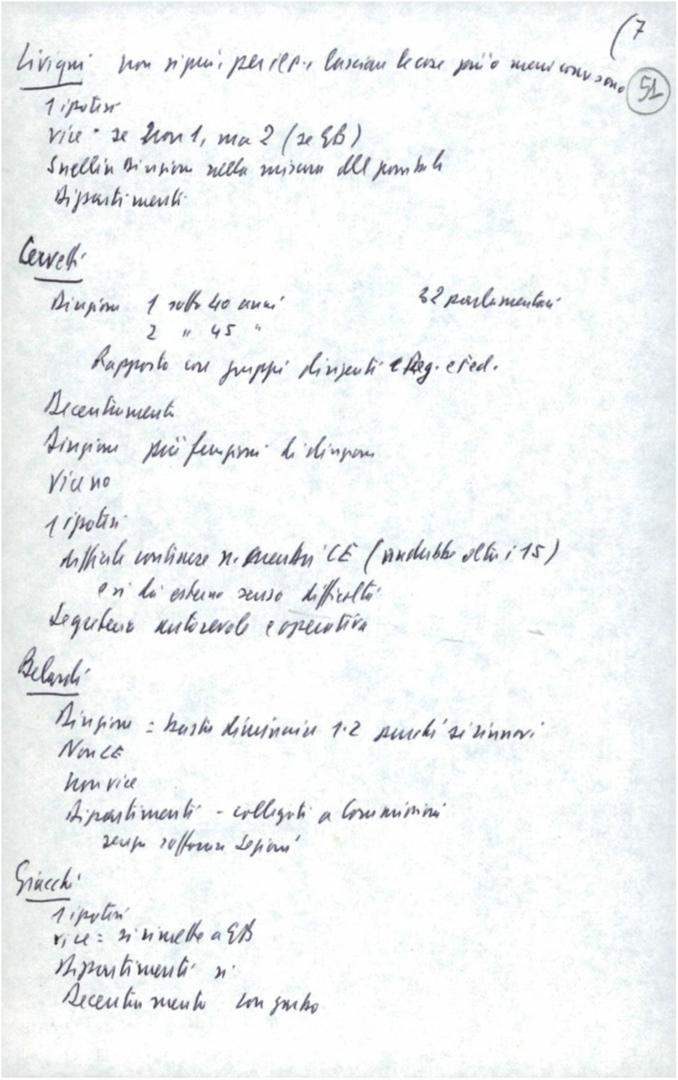 (7
51
Livigni non si può, per il p.., lasciare le cose più o meno come sono
1 ipotesi
vice - se 2 non 1, ma 2 (se EB)
Snellire Direzione nella misura del possibile
Dipartimenti
Cervetti
Direzione 1 sotto 40 anni 32 parlamentari
2 " 45 "
Rapporto con gruppi dirigenti e Reg. e Fed.
Decentramento
Direzione più funzioni di direzione
Vice no
1 ipotesi
difficile contenere n. membri CE (andrebbe oltre i 15)
e si dà esterno senso difficoltà
Segreteria autorevole e operativa
Belardi
Direzione = basta diminuire 1-2 purché si rinnovi
Non CE
non vice
Dipartimenti - collegati a Commissioni
senza soffocare Sezioni
Giacchi
1 ipotesi
vice = si rimette a EB
Dipartimenti si
Decentramento con